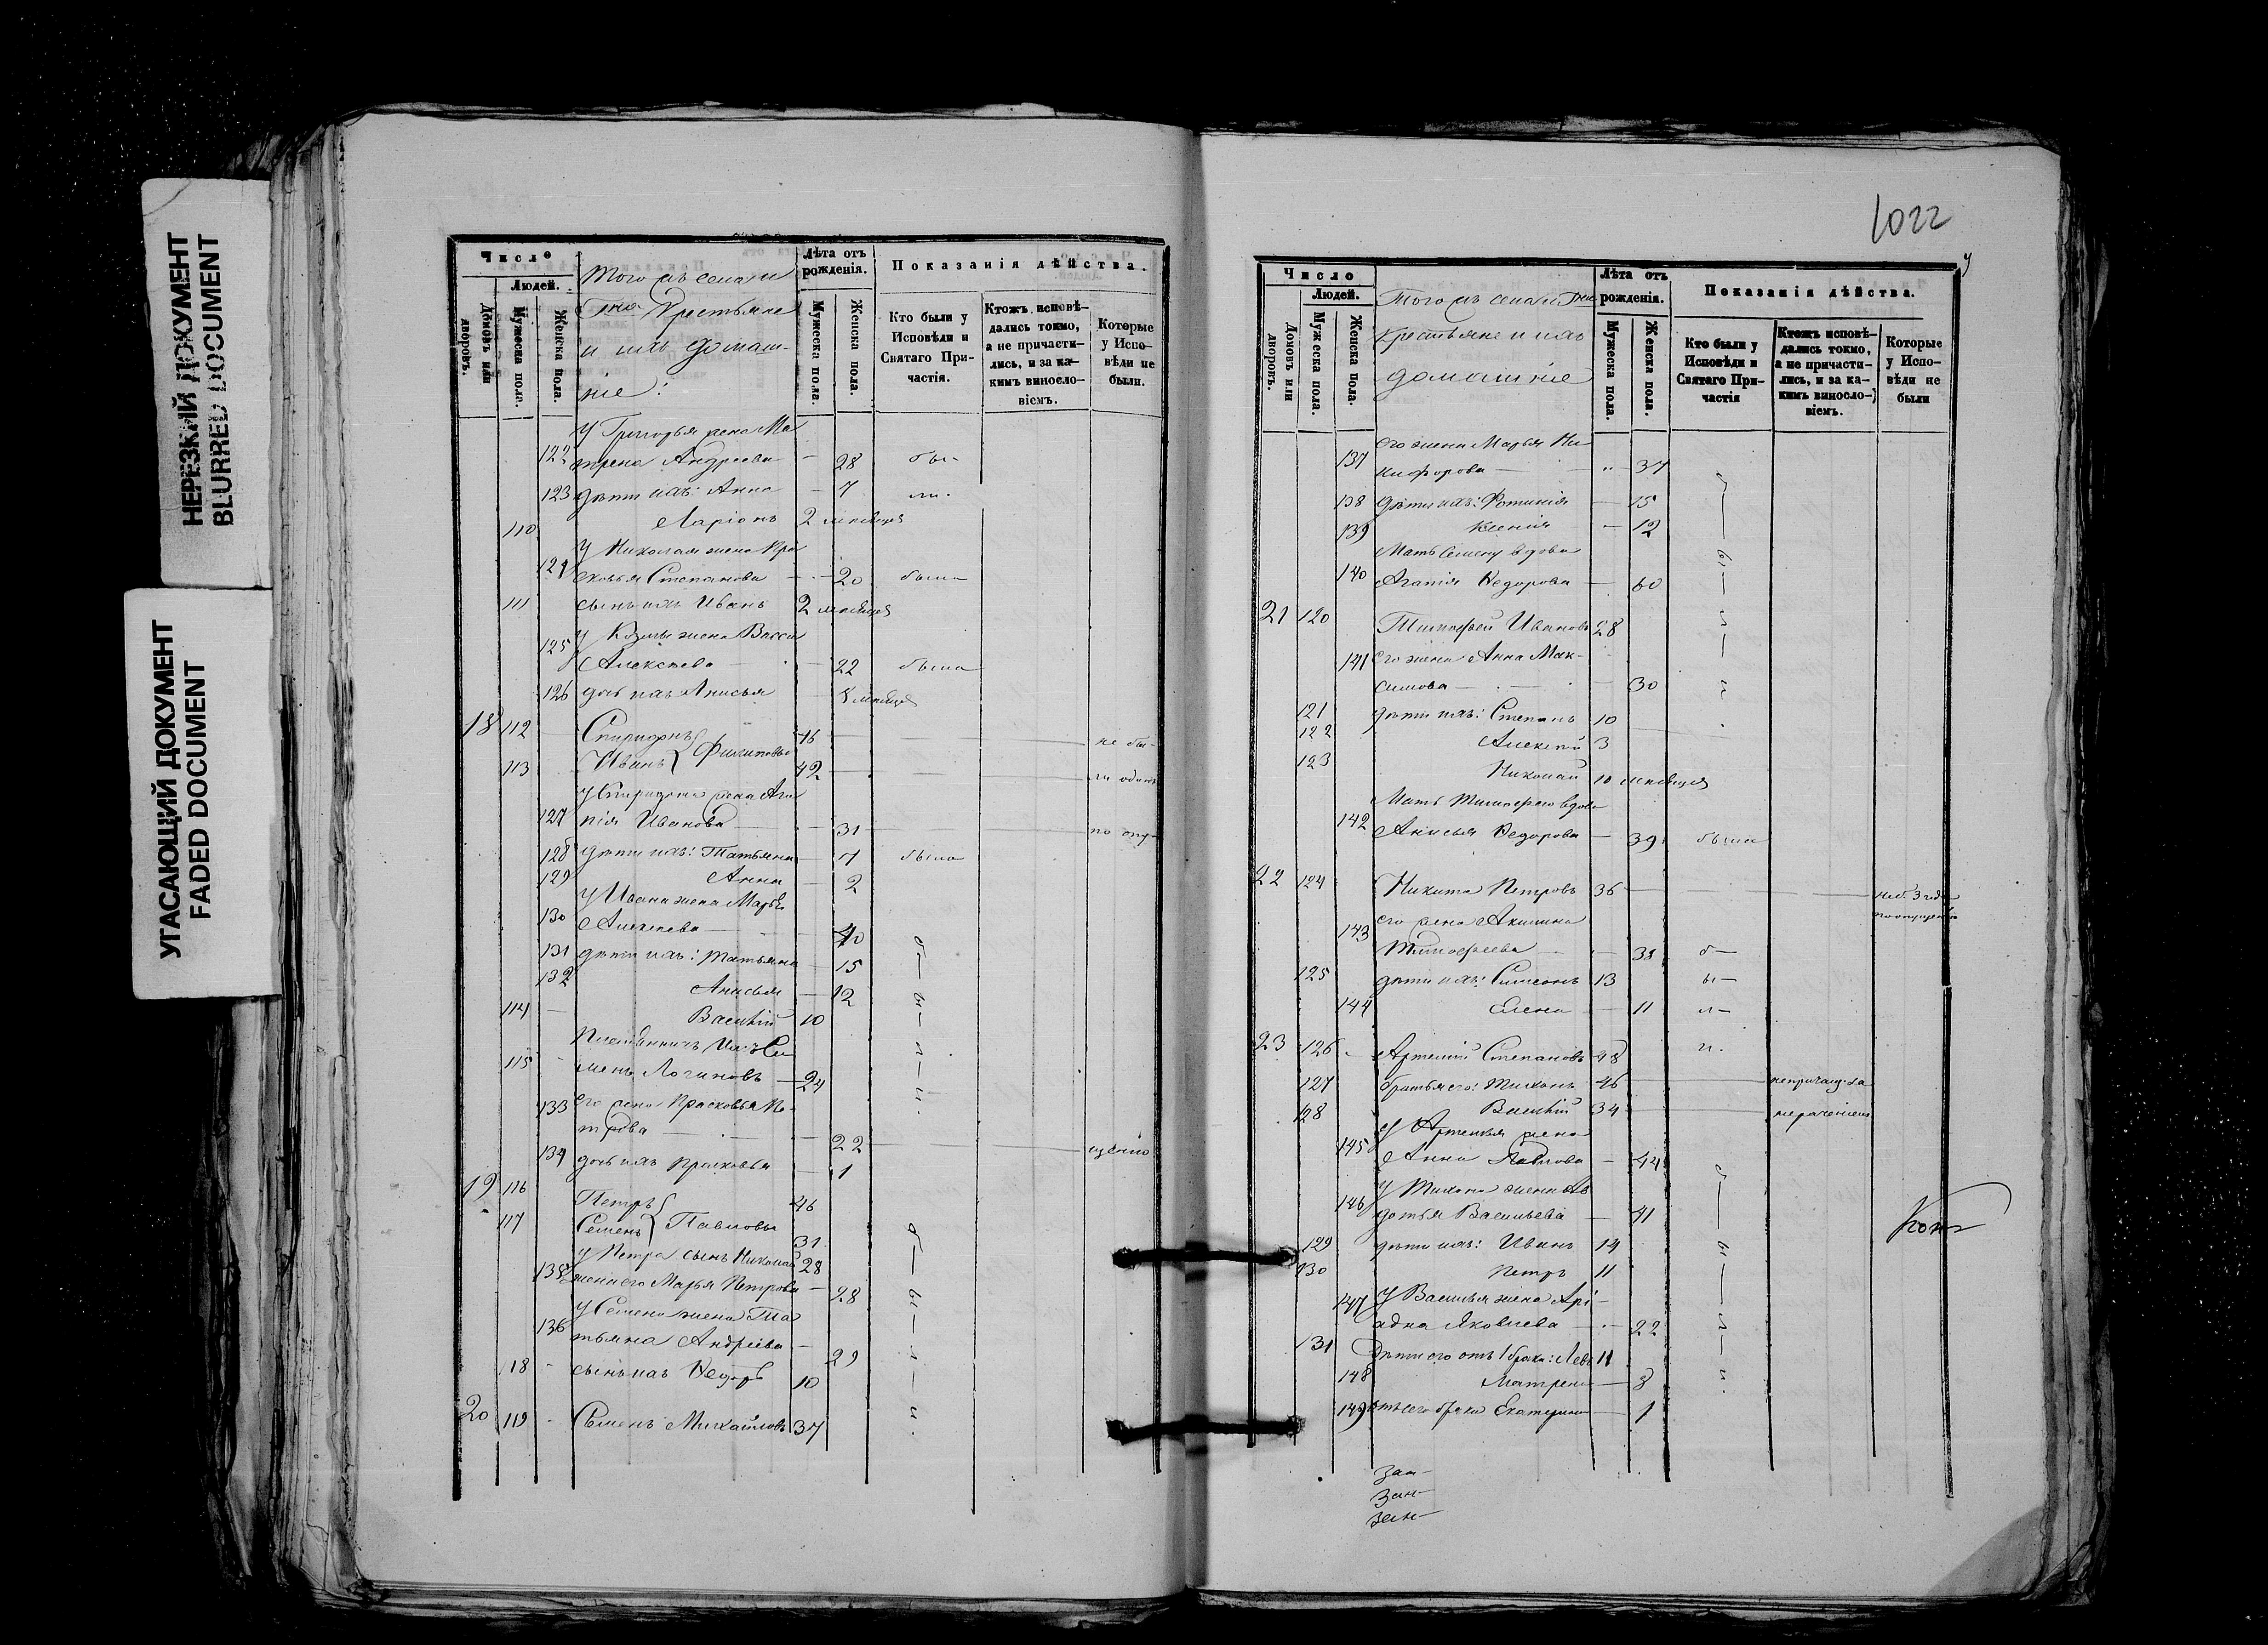 НЕРЕЗКИЙ ДОКУМЕНТ
BLURRED DOCUMENT
УГАСАЮЩИЙ ДОКУМЕНТ
FADED DOCUMENT
Число
Людей.
Домовъ или дворовъ.
Мужеска пола.
Женска пола.
Того жъ села и
крестьяне
и ихъ домаш-
ніе:
Лѣта отъ рожденія.
Мужеска пола.
Женска пола.
Показанія дѣйства.
Кто были у Исповѣди и Святаго При-частія.
Ктожъ исповѣ-дались токмо, а не причасти-лись, и за ка-кимъ винесло-віемъ.
Которые у Испо-вѣди не были.
У Григорья жена Ма
122 трена Андреева - 28 бы-
123 дѣти ихъ: Анна - 7 ли.
110 Ларіонъ 2 мѣсяцевъ
У Николая жена Пра
124 сковья Степанова - 20 была
111 сынъ ихъ Иванъ 2 мѣсяцевъ
У Козьмы жена Васси
125 Алексѣева - 22 была
126 дочь ихъ Анисья - мѣсяцев
18 112 Спиридонъ 45 не бы-
113 Иванъ } Филиповы 42 ли одинъ
У Спиридона жена Ага
127 пія Иванова - 31 по опу-
128 дѣти ихъ: Татьяна - 7 была
129 Анна - 2
У Ивана жена Марья
130 Алексѣева - 40
131 дѣти ихъ: Татьяна - 15 б-
132 Анисья - 12 ы-
114 Василій 10 л-
Племянникъ ихъ Се
115 менъ Логиновъ 24 и.
133 Его жена Прасковья Пе-
трова - 22 щенію
134 дочь ихъ Прасковья - 1
19 116 Петръ 46
117 Семенъ } Павловы 31 б-
У Петра сынъ Николай 28
135 жена его Марья Петрова - 28 ы-
У Семена жена Та
136 тьяна Андреева - 29 л-
118 сынъ ихъ Ѳедоръ 10
20 119 Семенъ Михайловъ 37 и.
1022
Число
Людей.
Домовъ или дворовъ.
Мужеска пола.
Женска пола.
Того жъ села и
крестьяне и ихъ
домашніе
Лѣта отъ рожденія.
Мужеска пола.
Женска пола.
Показанія дѣйства.
Кто были у Исповѣди и Святаго При-частія
Ктожъ исповѣ-дались токмо, а не причасти-лись, и за ка-кимъ винесло-віемъ.
Которые у Испо-вѣди не были
его жена Марья Ни
137 кифорова - 37
138 дѣти ихъ: Фотинія - 15 б-
139 Ксенія - 12
Мать Семену вдова
140 Агапія Ѳедорова - 60 ы-
21 120 Тимофей Ивановъ 28 л-
141 его жена Анна Мак-
симова - 30 и
121 дѣти ихъ: Степанъ 10
122 Алексѣй 3
123 Николай 10 мѣсяцев
Мать Тимофею вдова
142 Анисья Ѳедорова - 39 была
22 124 Никита Петровъ 36 не б. 3 года
по опущенію
его жена Акилина
143 Тимофеева - 38 б-
125 дѣти ихъ: Симеонъ 13 ы-
144 Елена - 11 л-
23 126 Артемій Степановъ 48 и.
127 братья его: Тихонъ 46 непричащ. за
128 Василій 34 нераченіем
У Артемья жена
145 Анна Павлова - 44
У Тихона жена Ав
146 дотья Васильева - 41 б-
129 дѣти ихъ: Иванъ 14 ы-
130 Петръ 11
147 У Василья жена Арі-
адна Яковлева - 22 л-
131 дѣти его отъ 1 брака: Левъ 11
148 Матрена - 3 и.
149 отъ сего брака Екатерина - 1